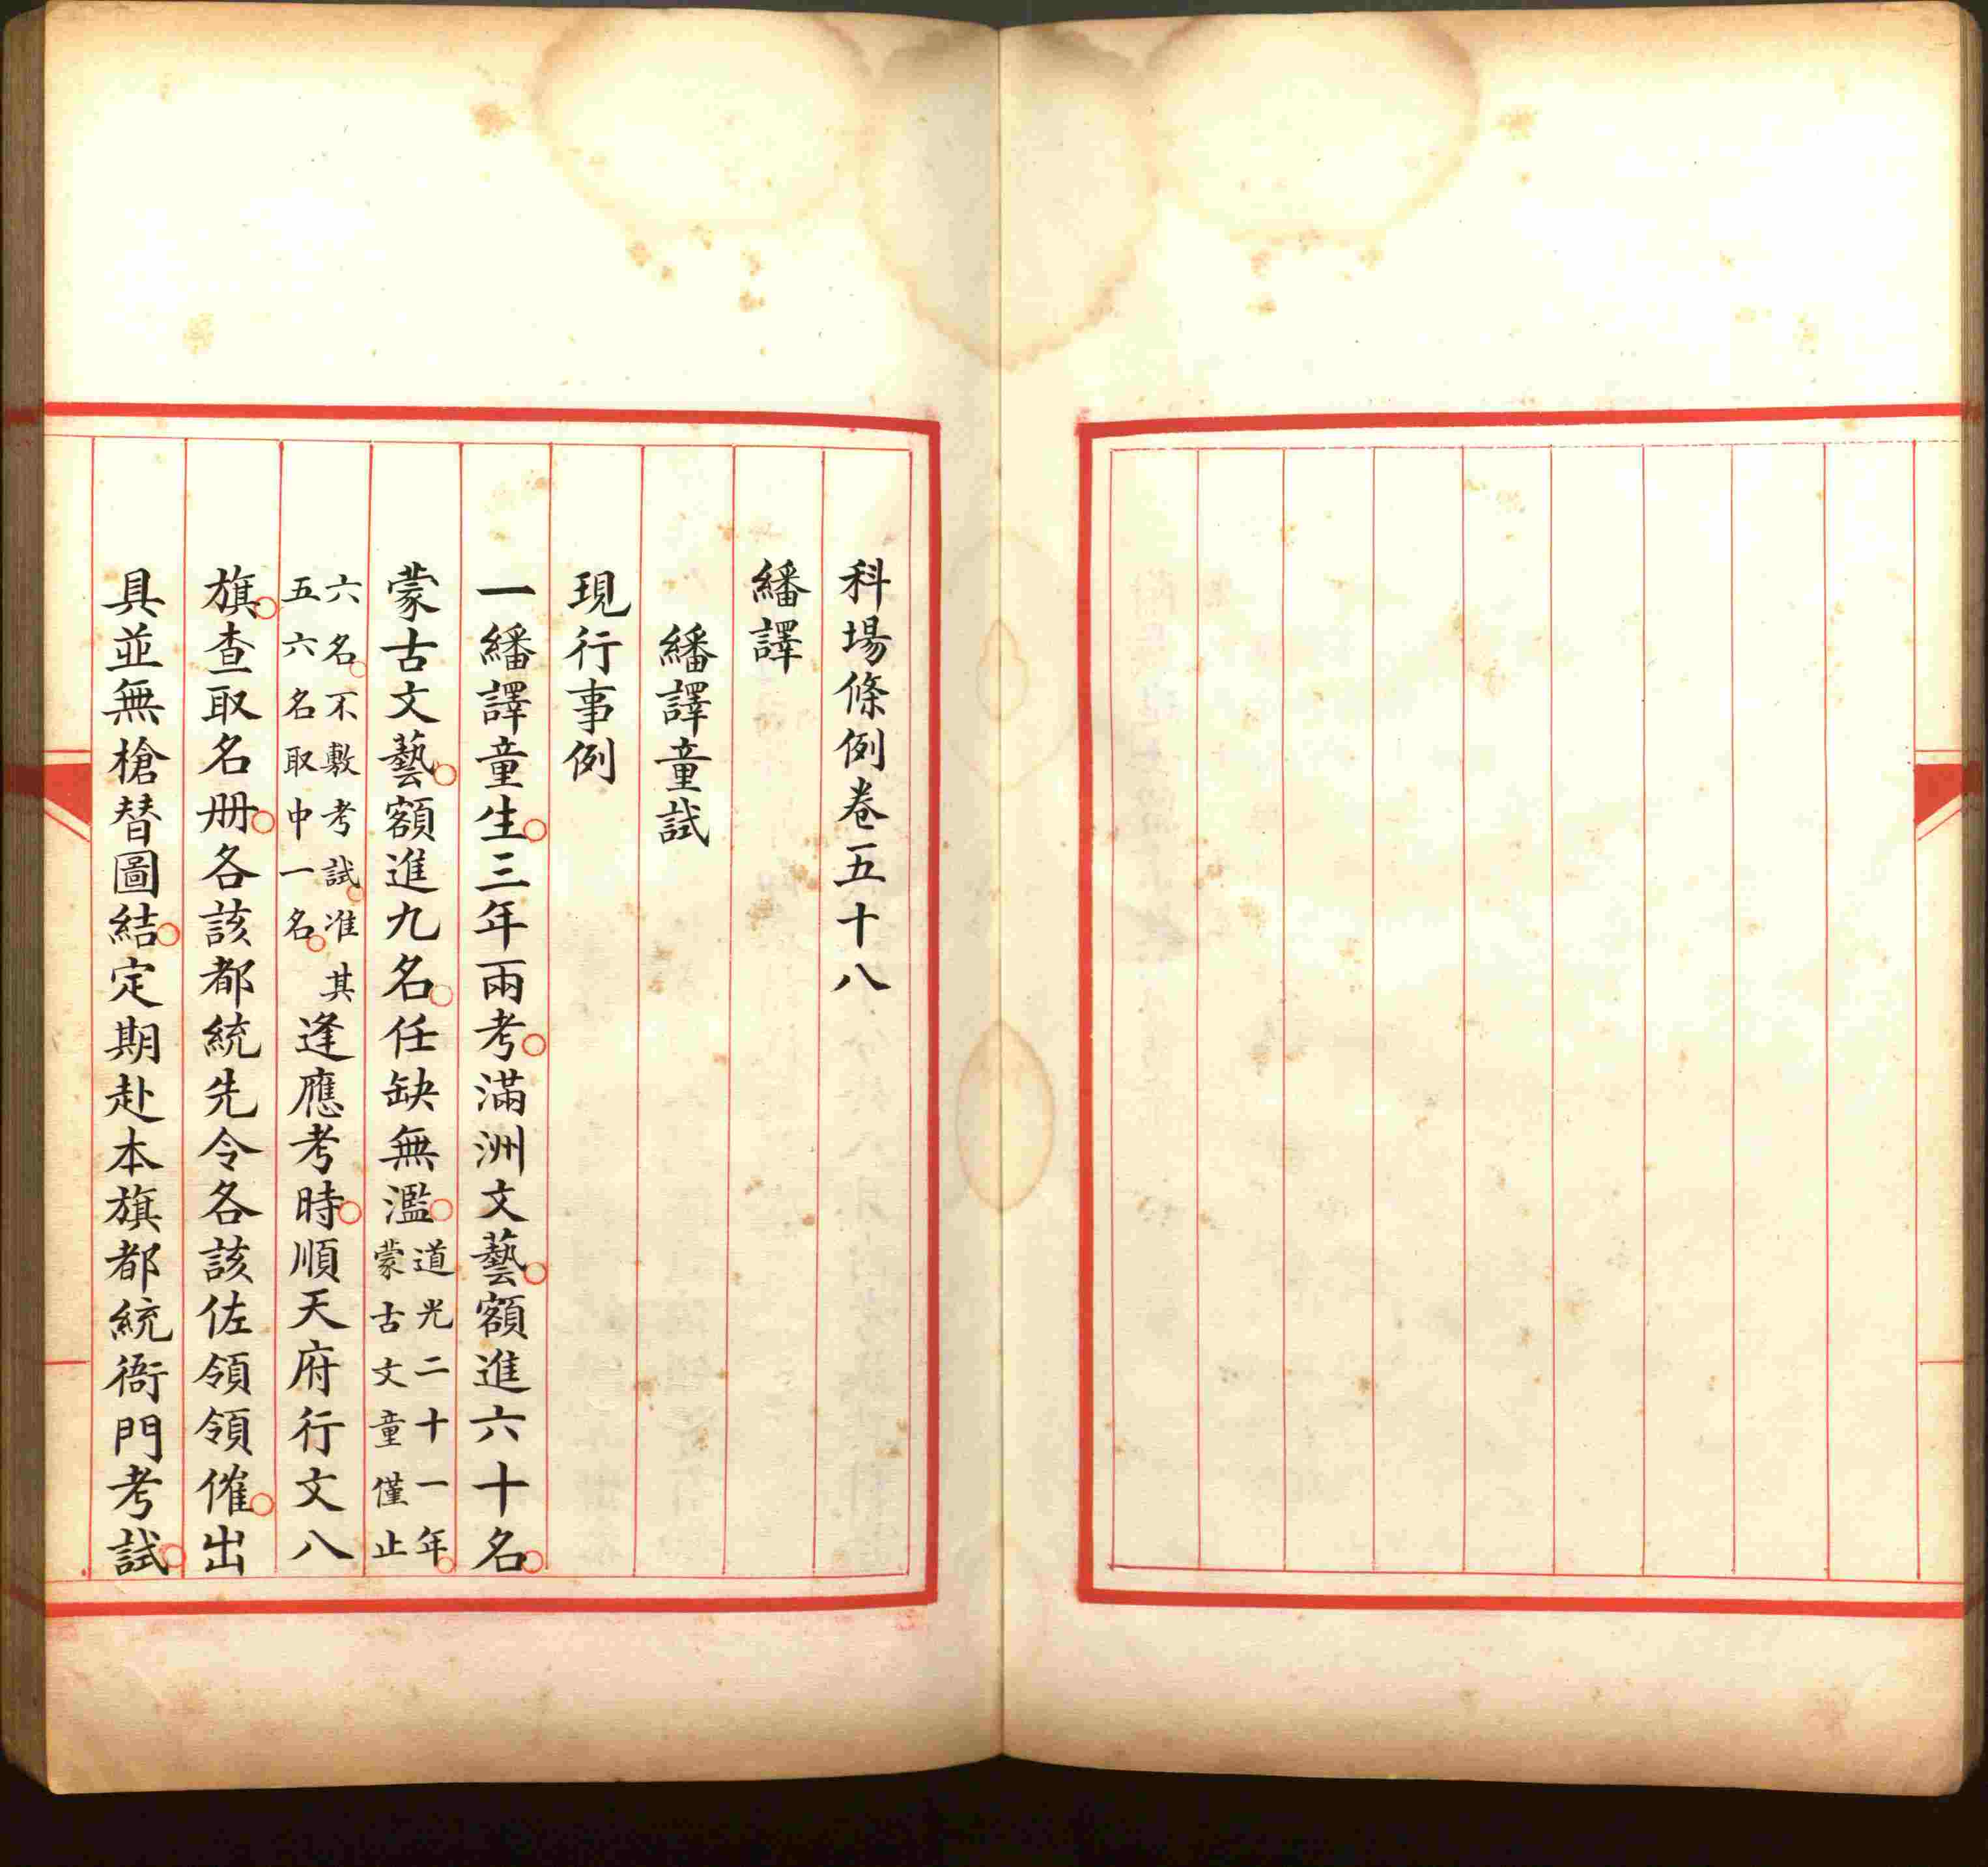 科場條例卷五十八
繙譯
繙譯童試
現行事例
一繙譯童生三年兩考滿洲文藝額進六十名
蒙古文藝額進九名任缺無濫道光二十一年蒙古文童僅止
六名不敷考試准其五六名取中一名逢應考時順天府行文八
旗查取名册各該都統先令各該佐領領催出
具並無槍替圖結定期赴本旗都統衙門考試